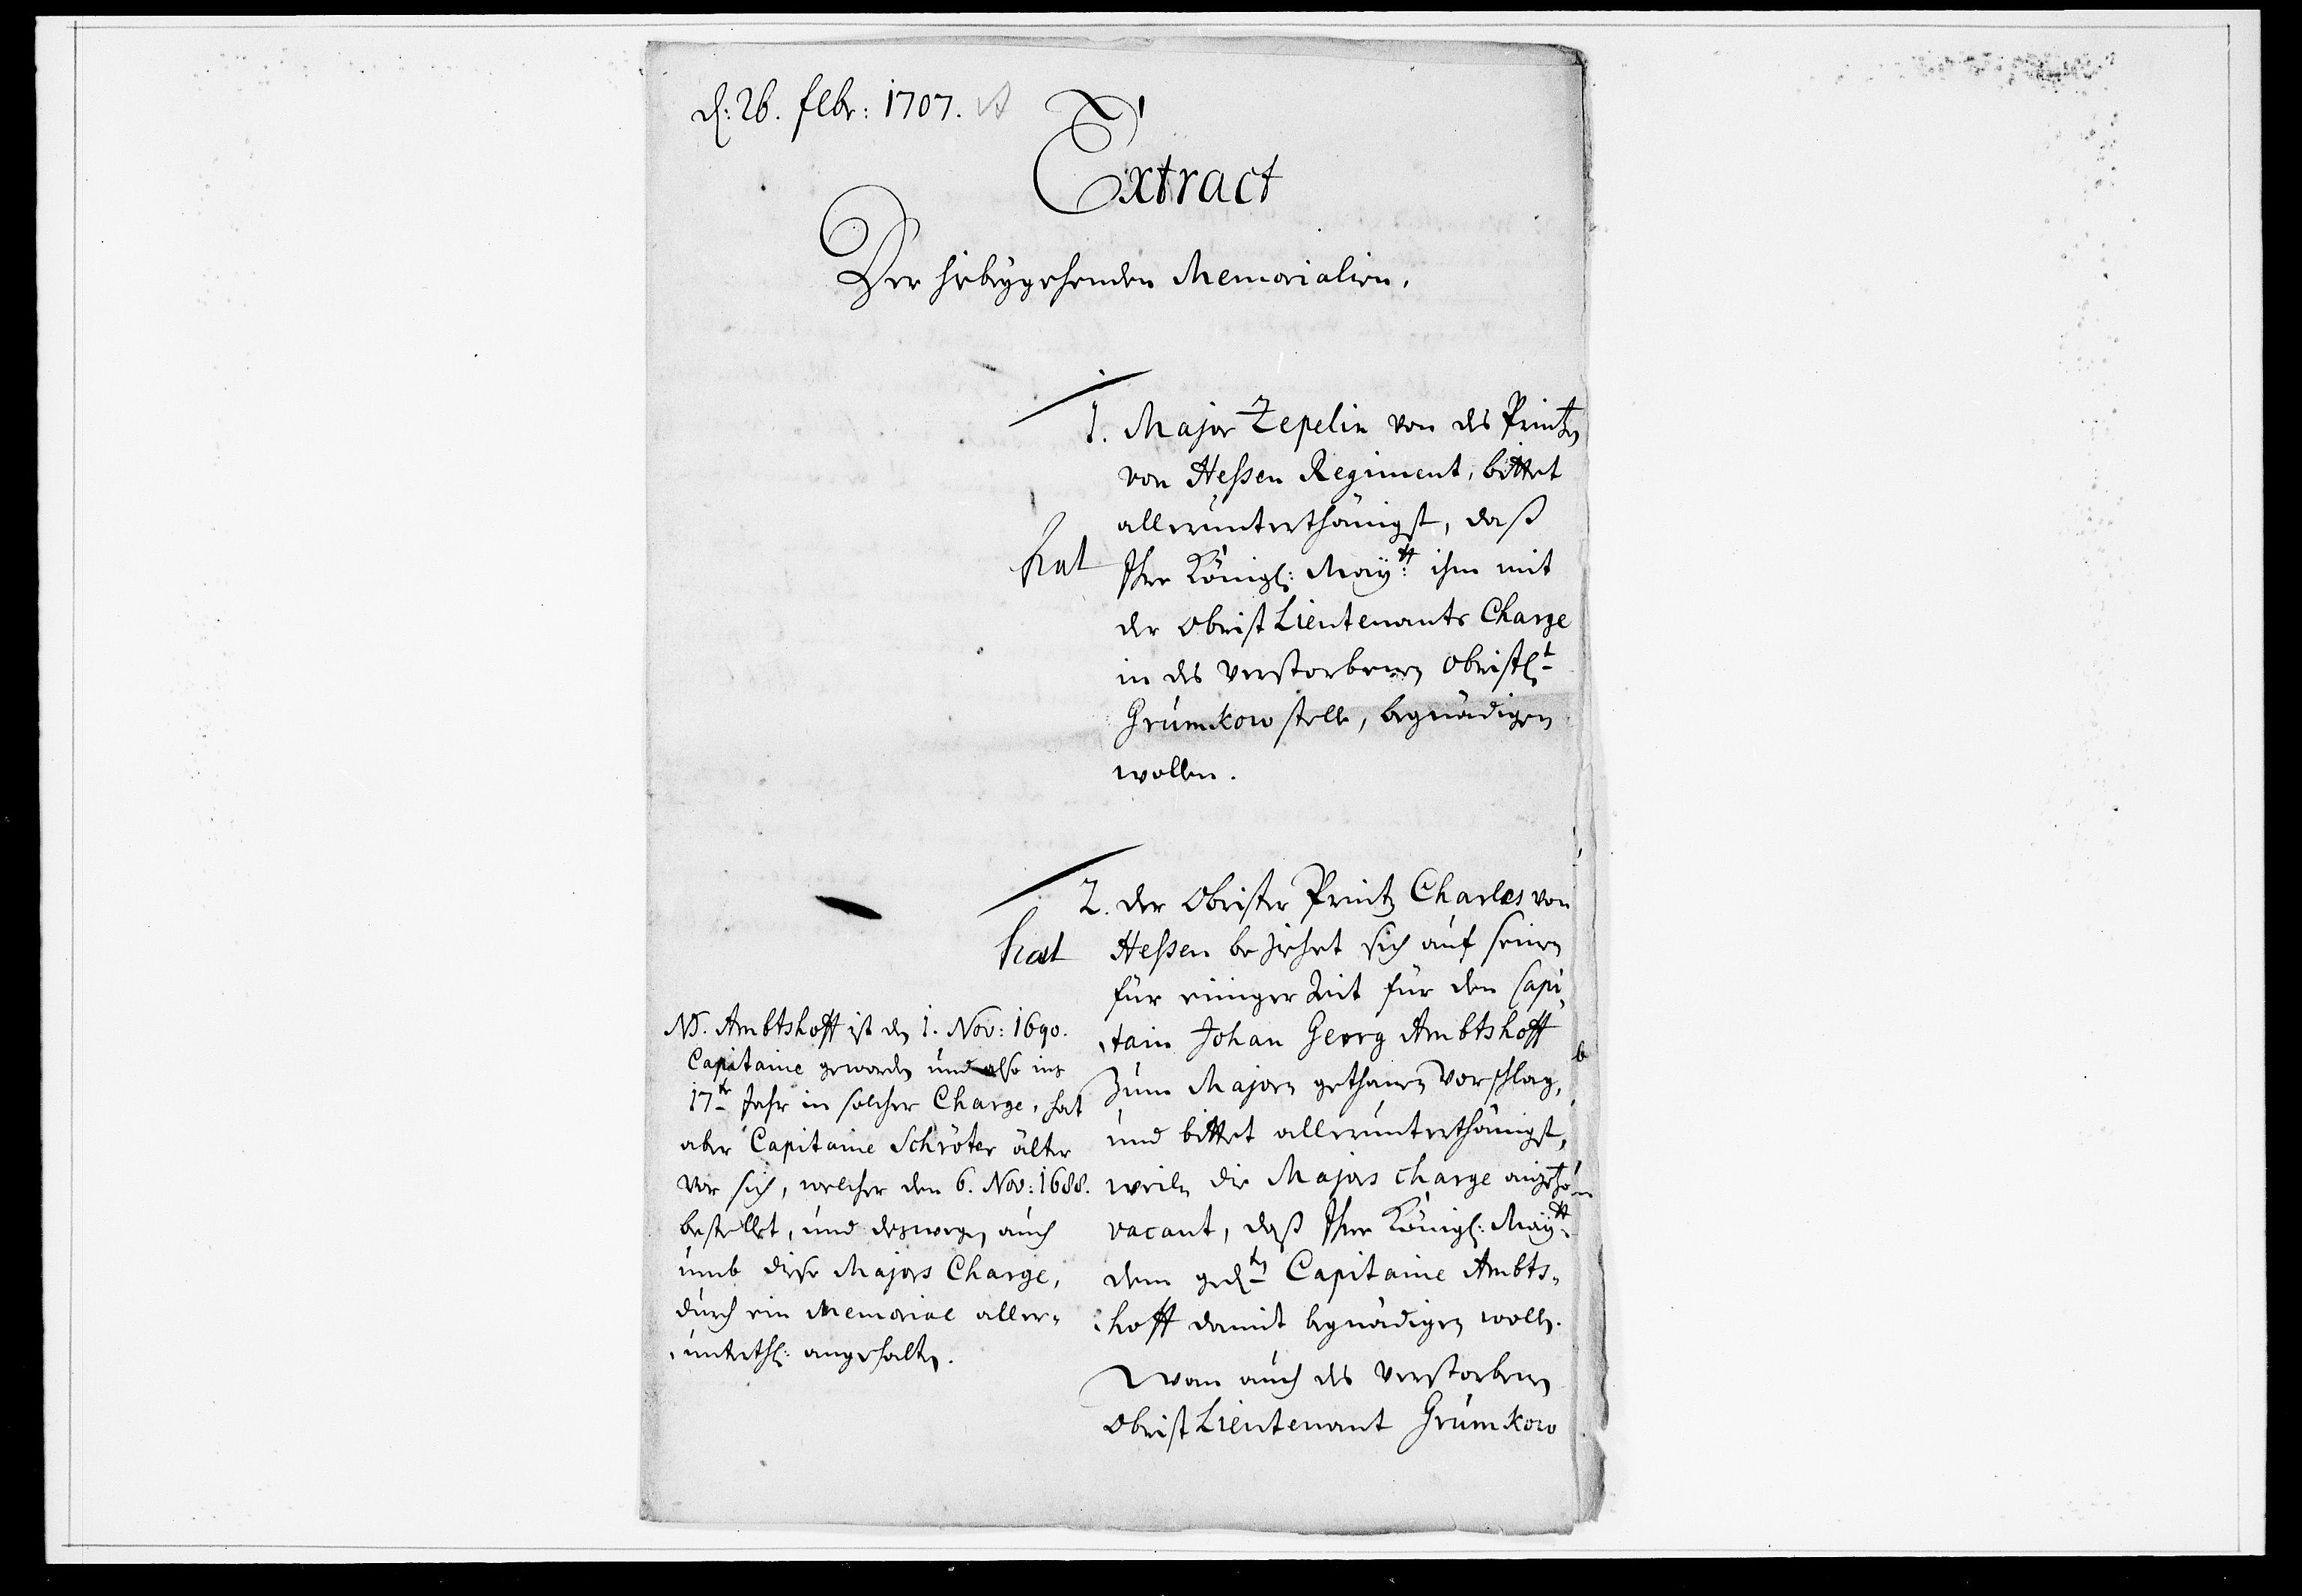 d: 26. febr: 1707.
Extract
Der hiebeygehenden Memorialien.
1. Major Zepelin von des Printzen
von Hessen Regiment, bittet
allerunterthänigst, daß
hat
Ihre Königl: Maytt: ihm mit
der Obrist Lieutenants Charge
in des verstorbenen Obristlt
Grumkow stelle, begnädigen
wollen.
2. der Obrister Printz Charles von
hat
Hessen beziehet sich auf seinen
für einiger Zeit für den Capi-
tain Johan Georg Ambtshoff
zum Majorn gethanen Vorschlag,
und bittet allerunterthänigst,
weiln die Majors charge anjetzo
vacant, daß Ihre Königl: Maytt
dem gedten Capitaine Ambts-
hoff damit begnädigen wolle.
Wan auch des verstorbenen
Obrist Lieutenant Grumkow
NB. Ambtshoff ist den 1. Nov: 1690.
Capitaine geworden und also ins
17te Jahr in solcher Charge, hat
aber Capitaine Schröter älter
vor sich, welcher den 6. Nov: 1688.
bestellet, und deswegen auch
umb diese Majors Charge,
durch ein Memorial aller-
unterthl: angehalten.